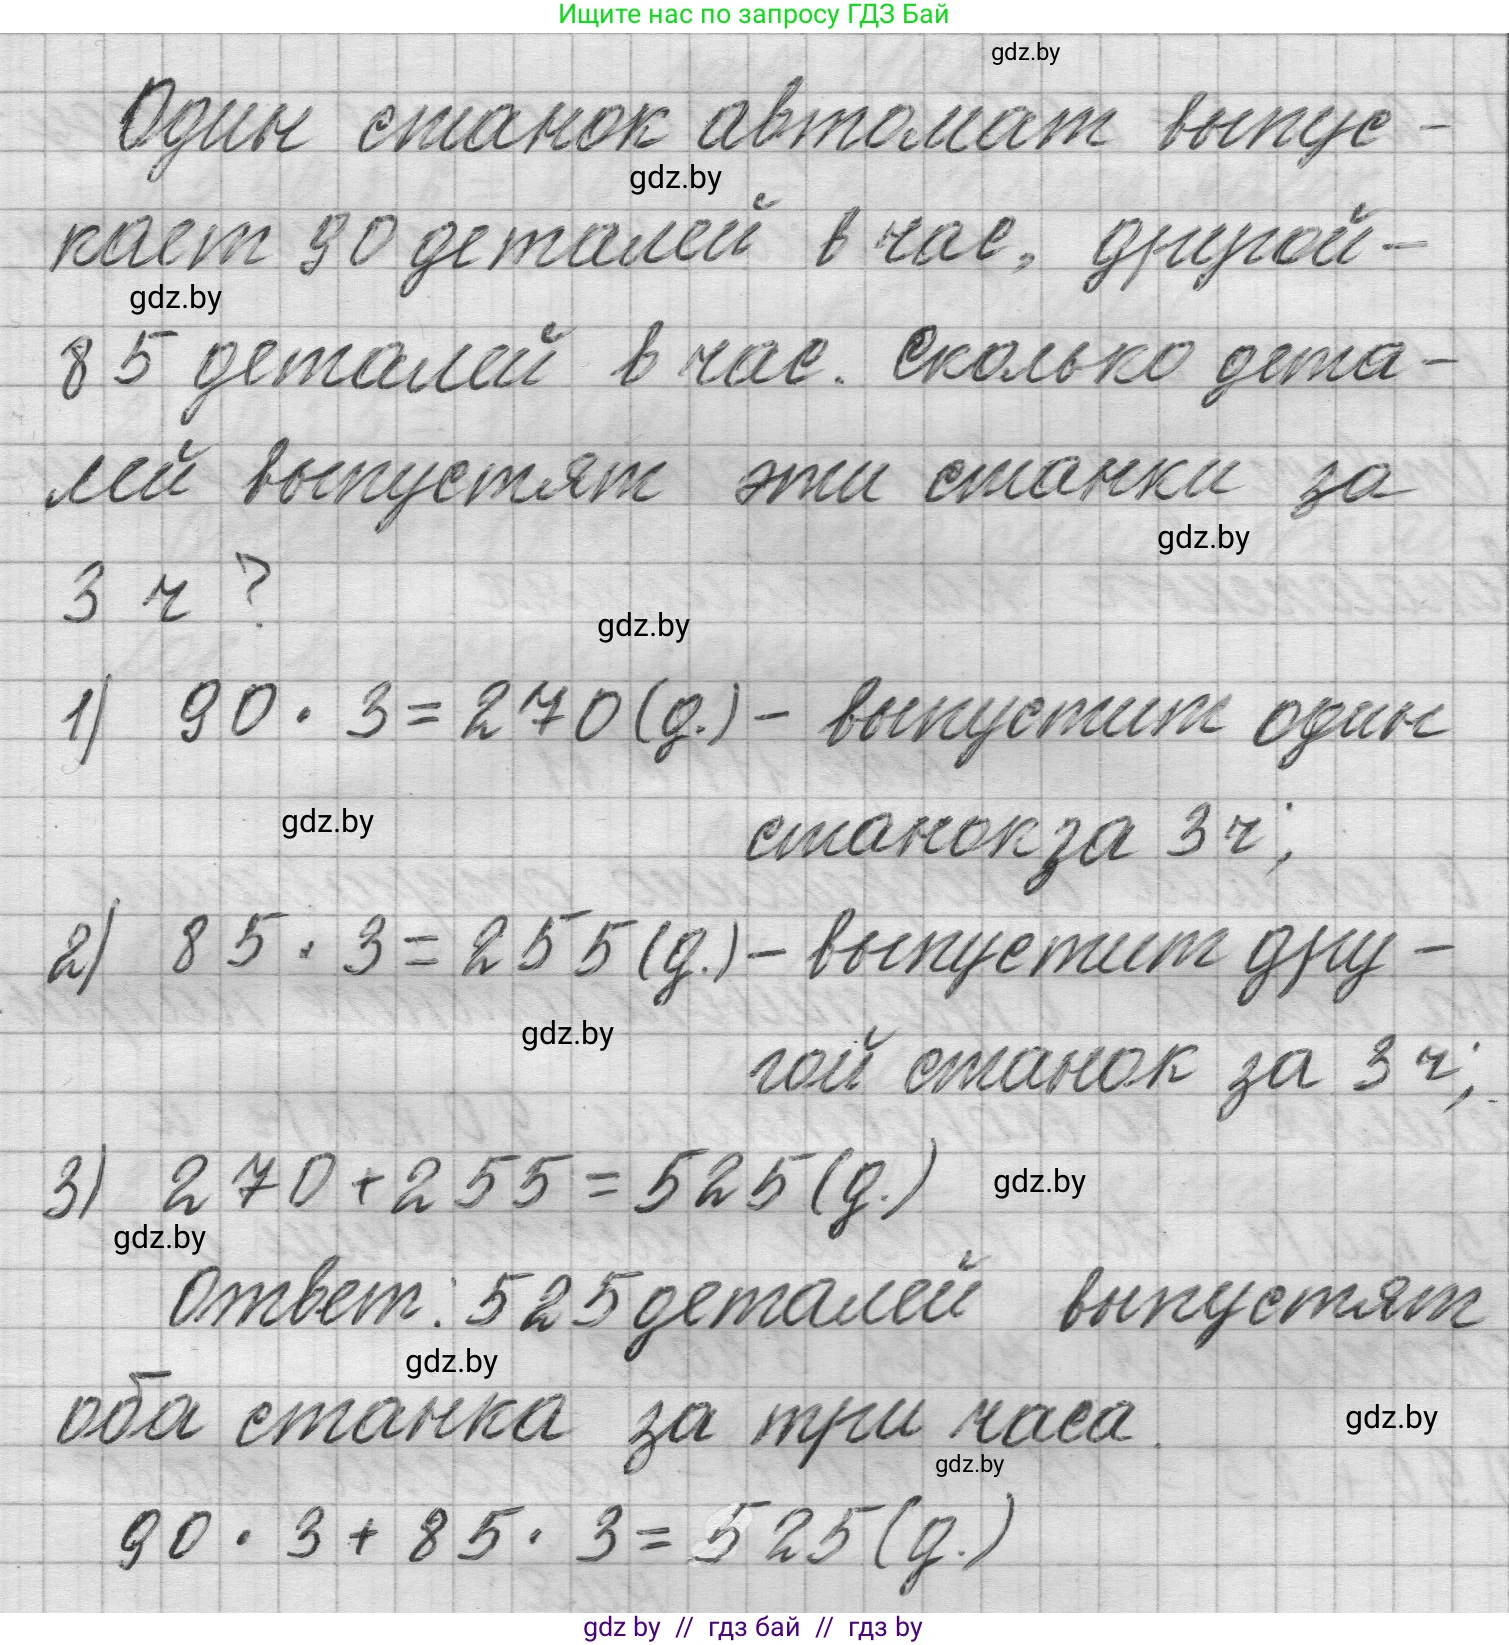 Ищите нас по запросу ГДЗ Бай
gdz.by
Один станок автомат выпус-
gdz.by
кает 90 деталей в час, другой-
gdz.by
85 деталей в час. Сколько дета-
лей выпустят эти станки за
gdz.by
3 ч ?
gdz.by
1) 90 · 3 = 270 (д.) - выпустит один
gdz.by
станок за 3 ч;
2) 85 · 3 = 255 (д.) - выпустит дру-
gdz.by
гой станок за 3 ч;
3) 270 + 255 = 525 (д.)
gdz.by
gdz.by
Ответ: 525 деталей выпустят
gdz.by
оба станка за три часа.
gdz.by
gdz.by
90 · 3 + 85 · 3 = 525 (д.)
gdz.by // гдз бай // гдз by